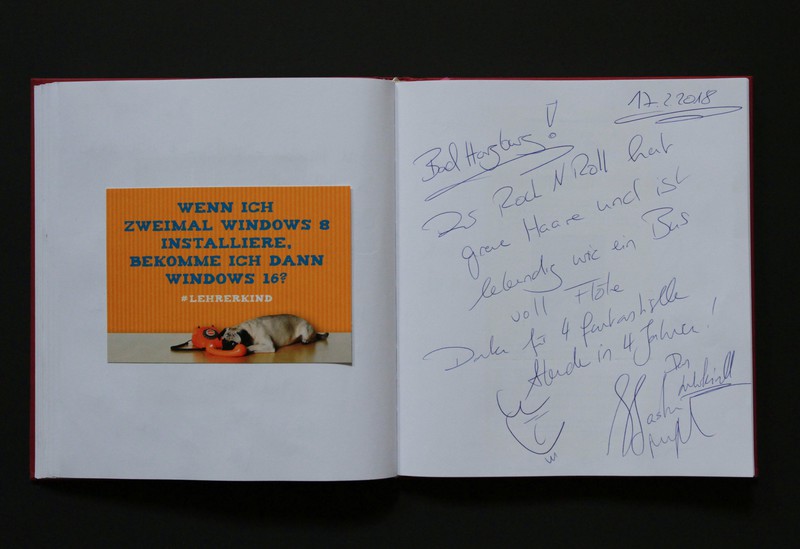 WENN ICH
ZWEIMAL WINDOWS 8
INSTALLIERE,
BEKOMME ICH DANN
WINDOWS 16?
#LEHRERKIND
17.2.2018
Bad Harzburg!
Der Rock N Roll hat
graue Haare und ist
lebendig wie ein Bus
voll Flöhe
Danke für 4 fantastische
Abende in 4 Jahren!
Das
Lehrerkind
Bastian